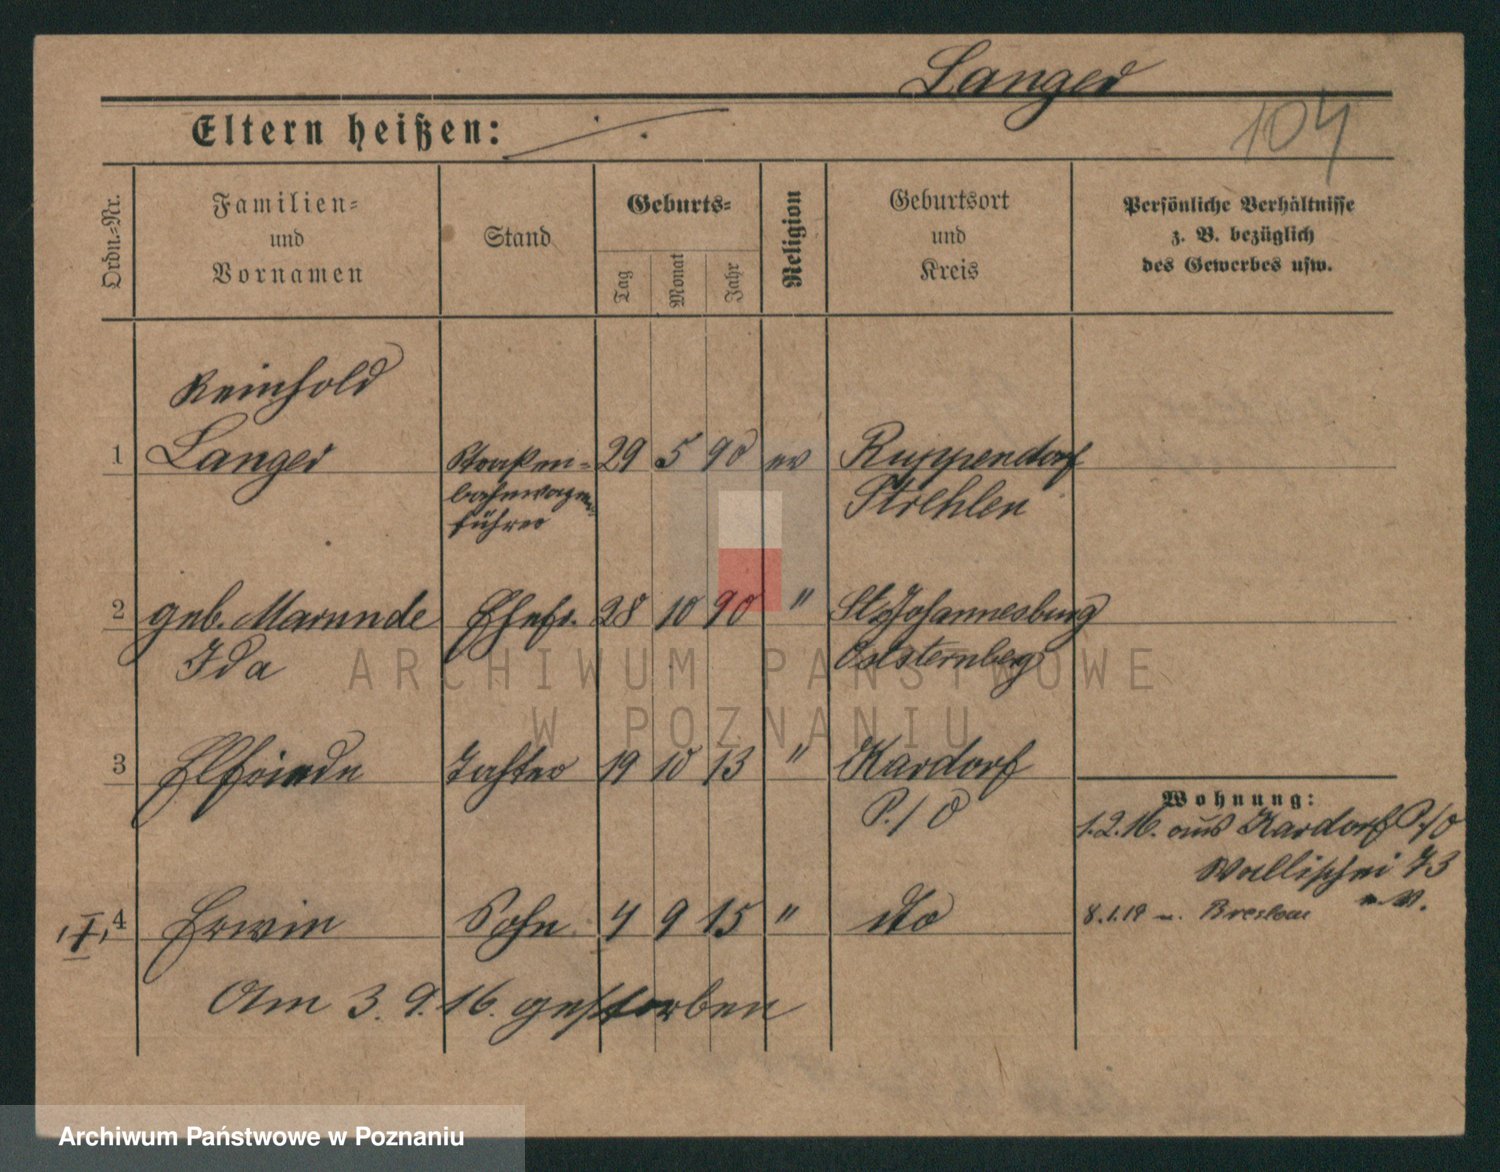 Langer
104
Eltern heißen:
Ordn.-Nr.
Familien-
und
Vornamen
Stand
Geburts-
Tag
Monat
Jahr
Religion
Geburtsort
und
Kreis
Persönliche Verhältnisse
z. B. bezüglich
des Gewerbes usw.
Reinhold
1 Langer Straßen- 29 5 90 ev Ruppendorf
bahnwagen-
führer
Strehlen
2 geb. Marunde Ehefr. 28 10 90 " Johannesburg
Ida
Oststernberg
3 Elfriede Tochter 19 10 13 " Kardorf
P./O
Wohnung:
1.2.16. aus Kardorf P./O
Wallischei 73
8.1.19 n. Breslau
4 Erwin Sohn 4 9 15 " dto
Am 3.9.16. gestorben
ARCHIWUM PAŃSTWOWE
W POZNANIU
Archiwum Państwowe w Poznaniu